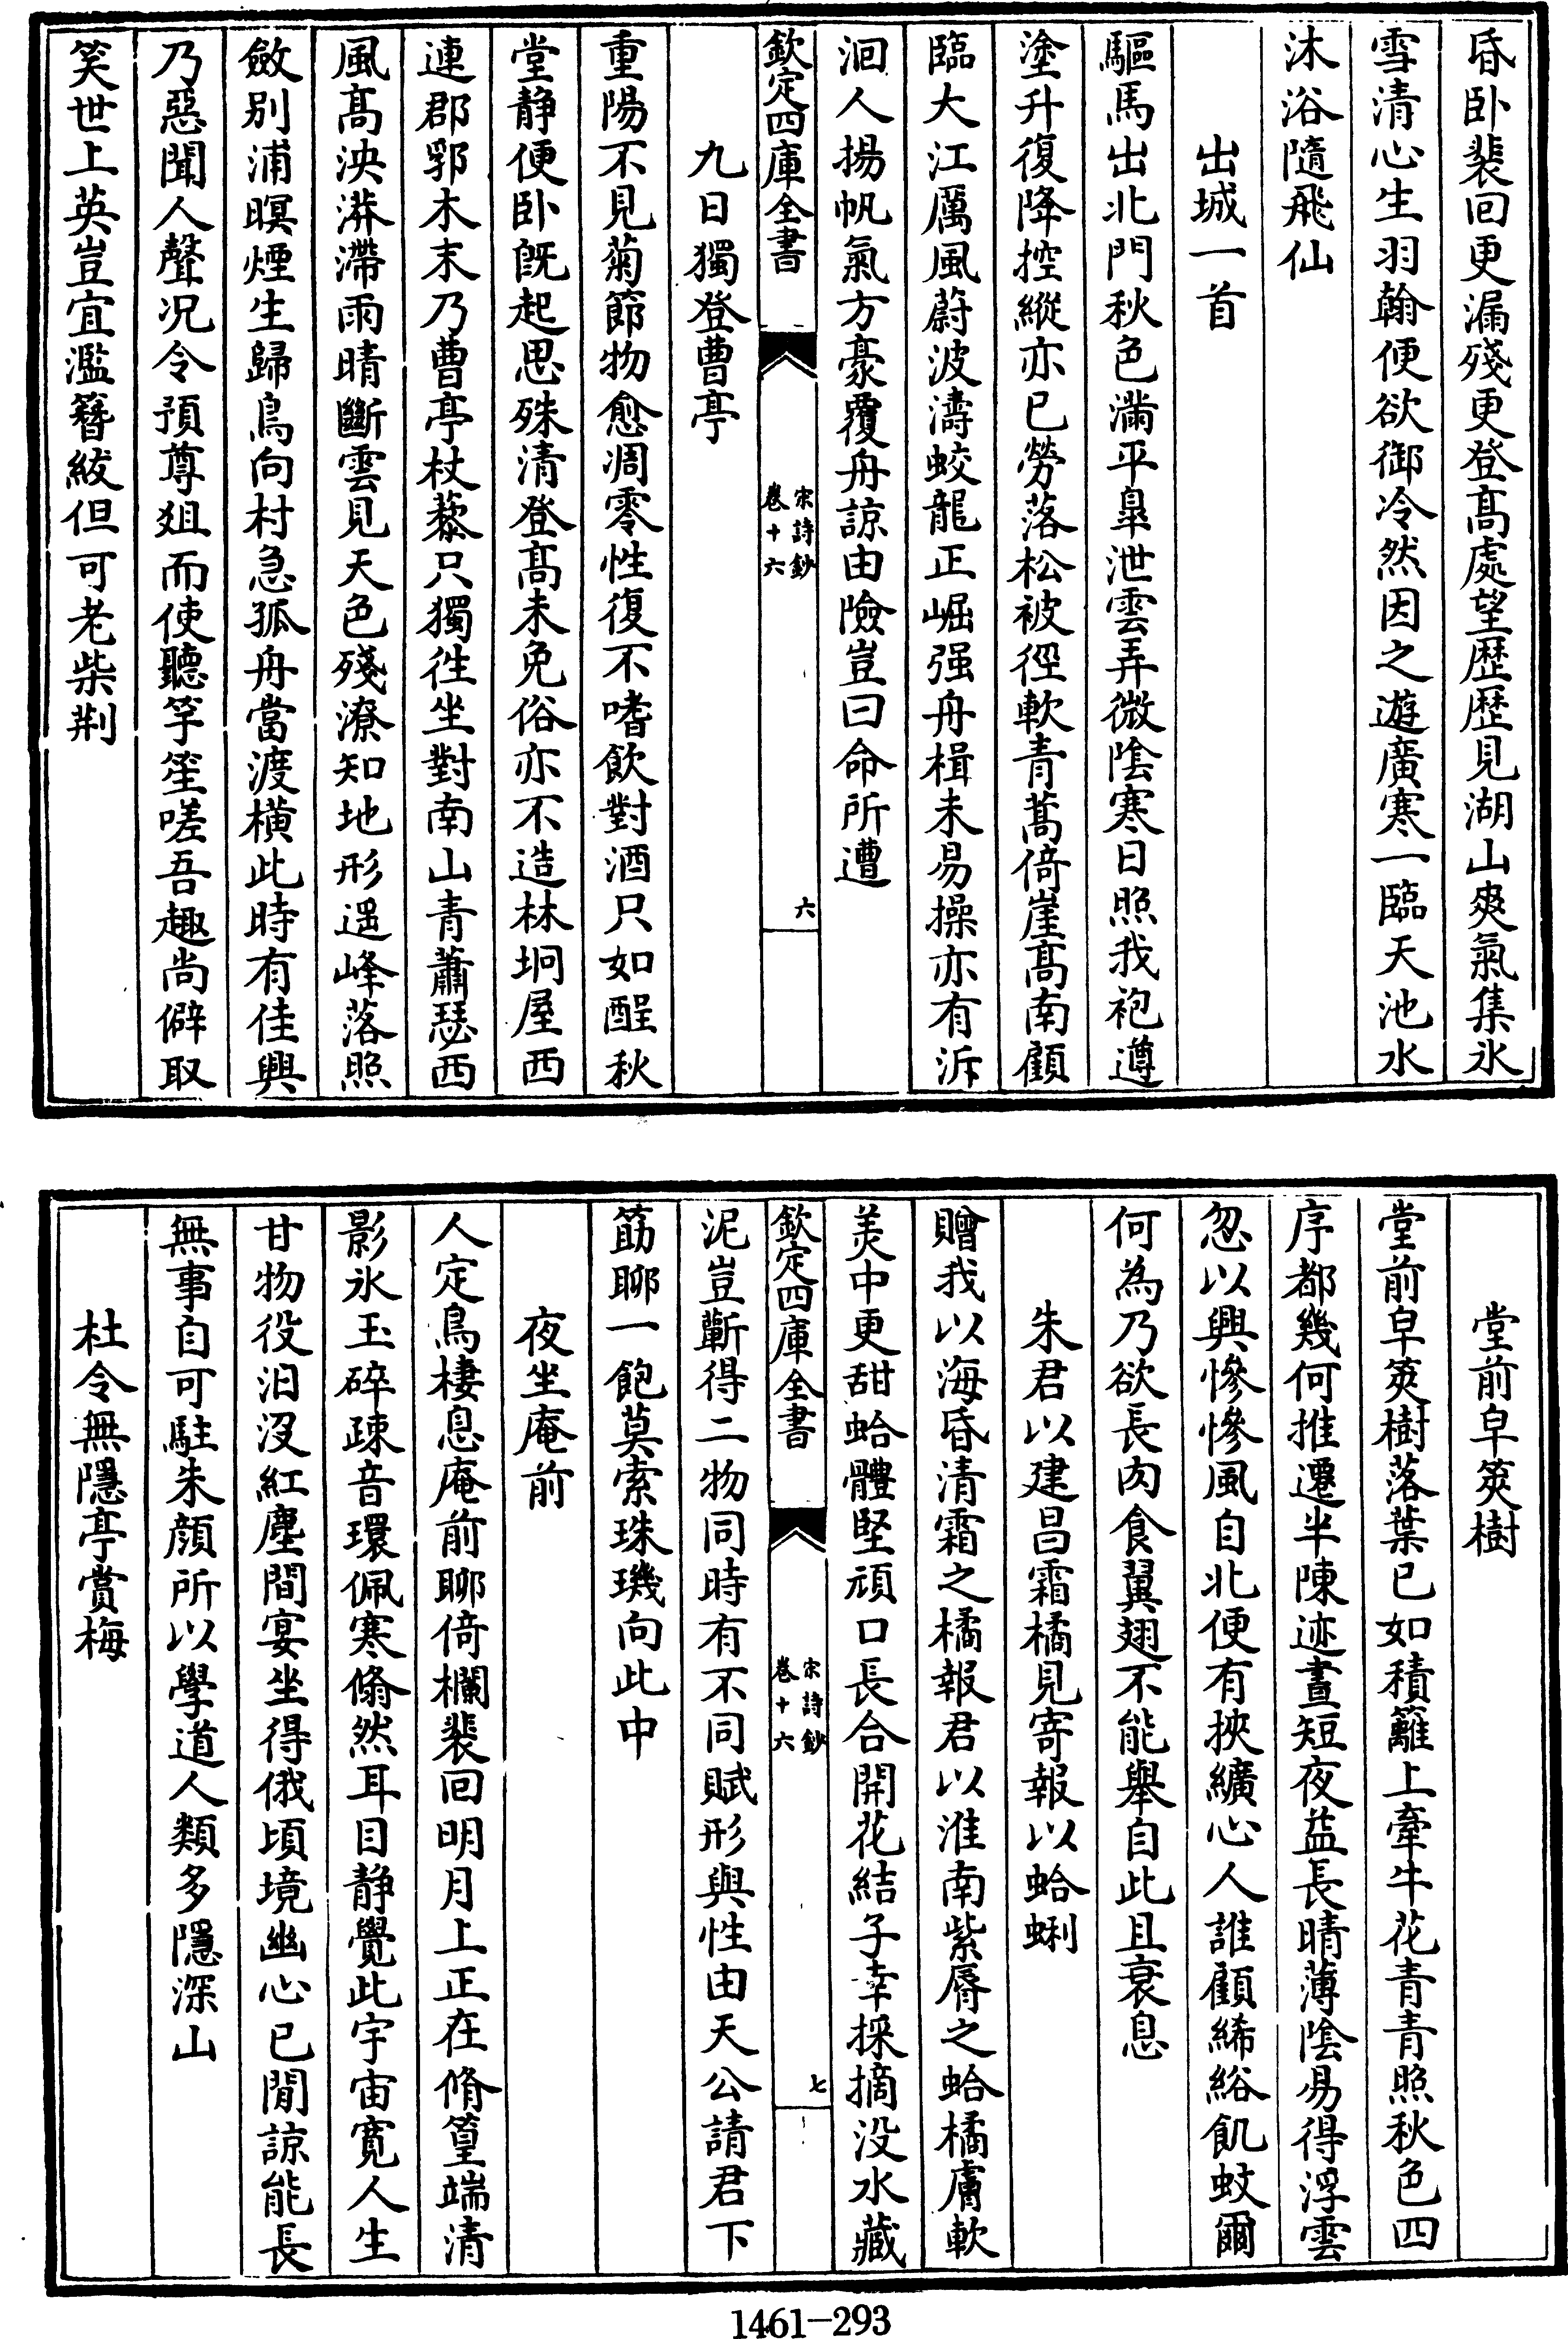 昏卧裴回更漏殘更登髙處望歴歴見湖山爽氣集氷
雪清心生羽翰便欲御冷然因之遊廣寒一臨天池水
沐浴隨飛仙
出城一首
驅馬出北門秋色滿平臯泄雲弄微陰寒日照我袍遵
塗升復降控縱亦已勞落松被徑軟青蒿倚崖髙南顧
臨大江厲風蔚波濤蛟龍正崛强舟楫未易操亦有泝
洄人揚帆氣方豪覆舟諒由險豈曰命所遭
欽定四庫全書
宋詩鈔
卷十六
六
九日獨登曹亭
重陽不見菊節物愈凋零性復不嗜飲對酒只如酲秋
堂静便卧既起思殊清登髙未免俗亦不造林坰屋西
連郡郭木末乃曹亭杖藜只獨徃坐對南山青蕭瑟西
風髙泱漭滯雨晴斷雲見天色殘潦知地形遥峰落照
斂别浦暝煙生歸鳥向村急孤舟當渡横此時有佳興
乃惡聞人聲况令預尊爼而使聽竽笙嗟吾趣尚僻取
笑世上英豈宜濫簪紱但可老柴荆
堂前皁莢樹
堂前皁莢樹落葉已如積籬上牽牛花青青照秋色四
序都幾何推遷半陳迹晝短夜益長晴薄陰易得浮雲
忽以興慘慘風自北便有挾纊心人誰顧絺綌飢蚊爾
何為乃欲長肉食翼翅不能舉自此且衰息
朱君以建昌霜橘見寄報以蛤蜊
贈我以海昏清霜之橘報君以淮南紫脣之蛤橘膚軟
美中更甜蛤體堅頑口長合開花結子幸採摘没水藏
欽定四庫全書
宋詩鈔
卷十六
七
泥豈蘄得二物同時有不同賦形與性由天公請君下
筯聊一飽莫索珠璣向此中
夜坐庵前
人定鳥棲息庵前聊倚欄裴回明月上正在脩篁端清
影氷玉碎疎音環佩寒翛然耳目静覺此宇宙寛人生
甘物役汩没紅塵間宴坐得俄頃境幽心已閒諒能長
無事自可駐朱顔所以學道人類多隱深山
杜令無隱亭賞梅
1461-293